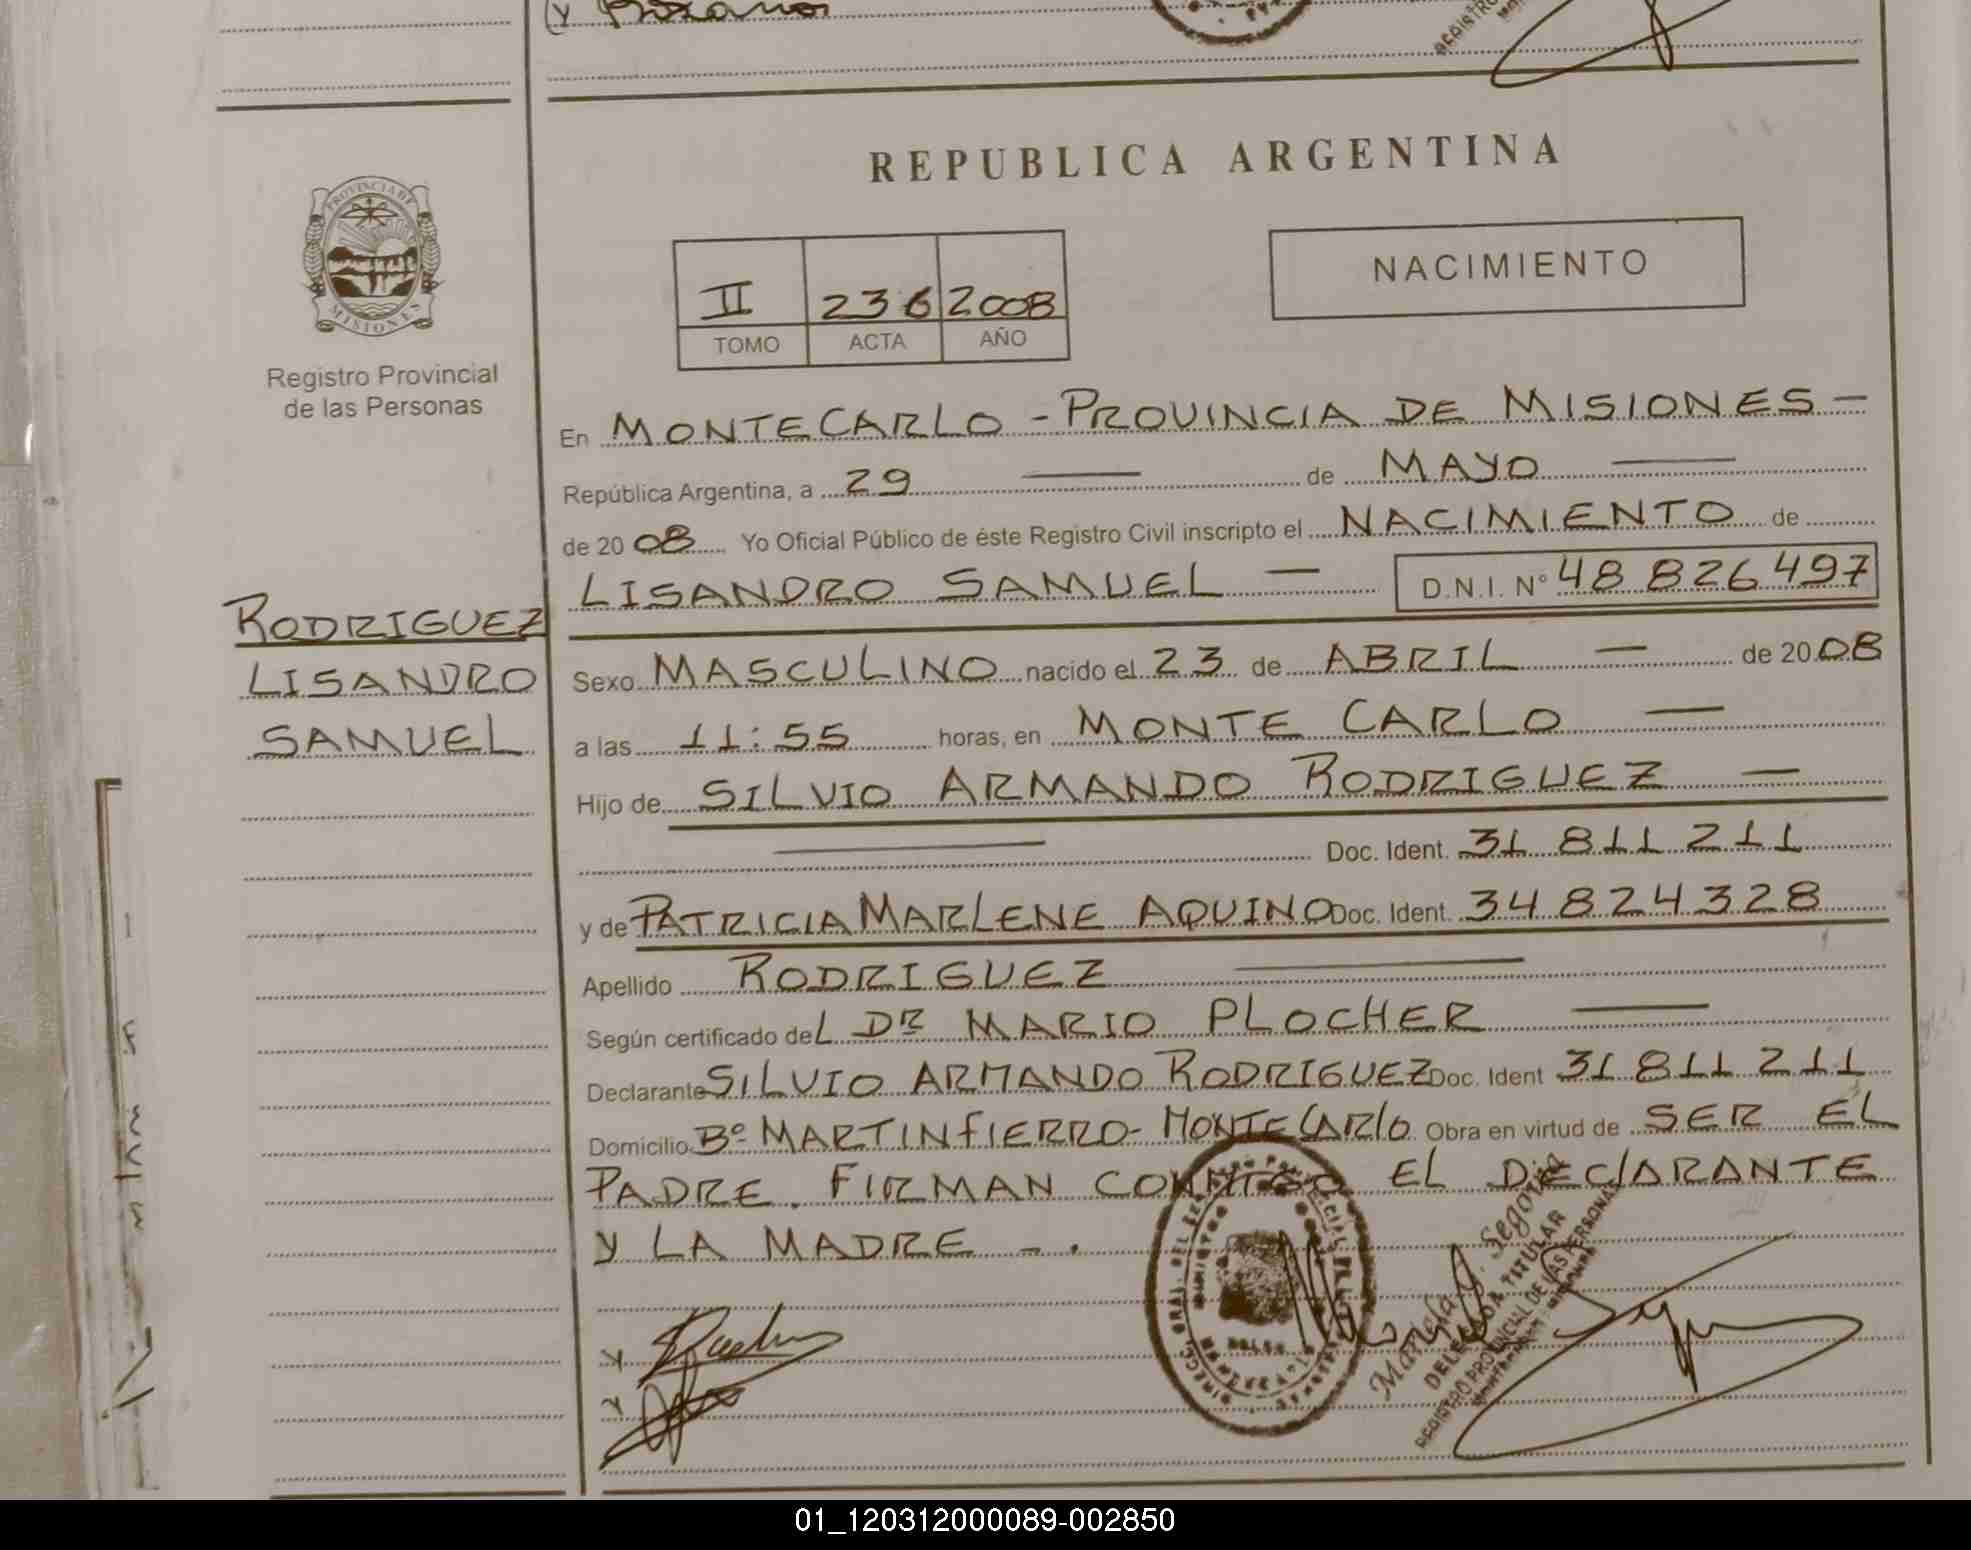 PROVINCIA DE
MISIONES
Registro Provincial
de las Personas
RODRIGUEZ
LISANDRO
SAMUEL
REPUBLICA ARGENTINA
II 236 2008
TOMO ACTA AÑO
NACIMIENTO
En MONTECARLO - PROVINCIA DE MISIONES —
República Argentina, a 29 — de MAYO —
de 2008 Yo Oficial Público de éste Registro Civil inscripto el NACIMIENTO de
LISANDRO SAMUEL — D.N.I. Nº 48 826 497
Sexo MASCULINO nacido el 23 de ABRIL — de 2008
a las 11:55 horas, en MONTE CARLO —
Hijo de SILVIO ARMANDO RODRIGUEZ —
— Doc. Ident. 31 811 211
y de PATRICIA MARLENE AQUINO Doc. Ident. 34 824 328
Apellido RODRIGUEZ —
Según certificado del DR MARIO PLOCHER —
Declarante SILVIO ARMANDO RODRIGUEZ Doc. Ident 31 811 211
Domicilio Bº MARTIN FIERRO - MONTECARLO Obra en virtud de SER EL
PADRE. FIRMAN CONMIGO EL DECLARANTE
Y LA MADRE -.
DELEGADA TITULAR
REGISTRO PROVINCIAL DE LAS PERSONAS
01_120312000089-002850